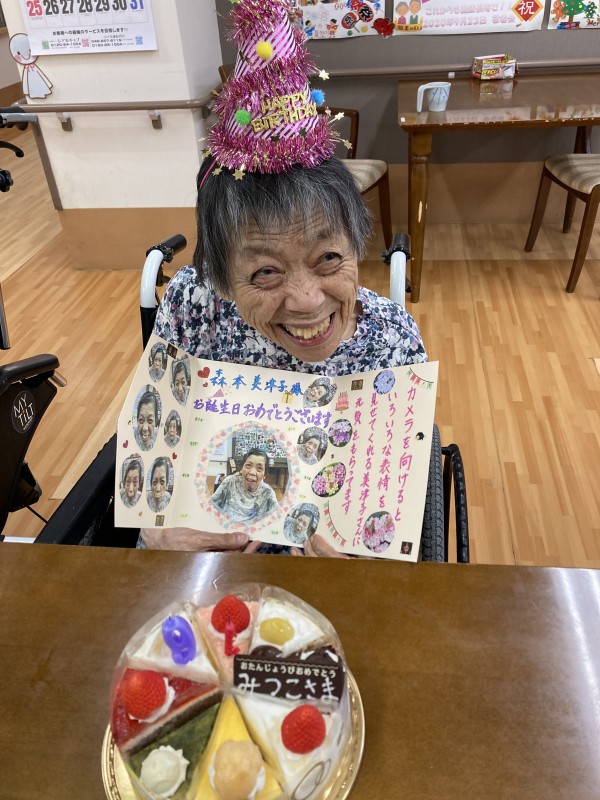 25 26 27 28 29 30 31
祝
HAPPY
BIRTHDAY
森本美津子様
お誕生日おめでとうございます
カメラを向けると
いろいろな表情を
見せてくれる美津子さんに
元気をもらってます
MY
TILT
おたんじょうびおめでとう
みつこさま